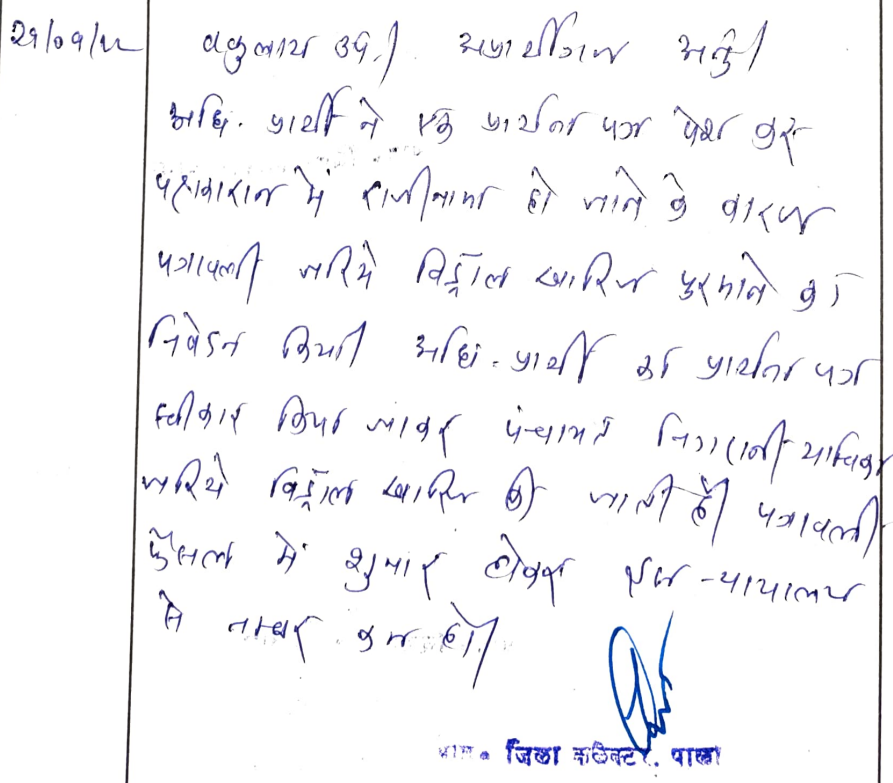 29/09/22
वकुलाय उप.। अप्रार्थीगण अनु.।
अधि. प्रार्थी ने एक प्रार्थना पत्र पेश कर
पक्षकारान में राजीनामा हो जाने के कारण
पत्रावली जरिये विड्रॉल खारिज फरमाने का
निवेदन किया। अधि. प्रार्थी का प्रार्थना पत्र
स्वीकार किया जाकर पंचायत निगरानी याचिका
जरिये विड्रॉल खारिज की जाती है। पत्रावली
फैसल में शुमार होकर इस न्यायालय
से नम्बर कम हो।
जिला कलेक्टर, पाली